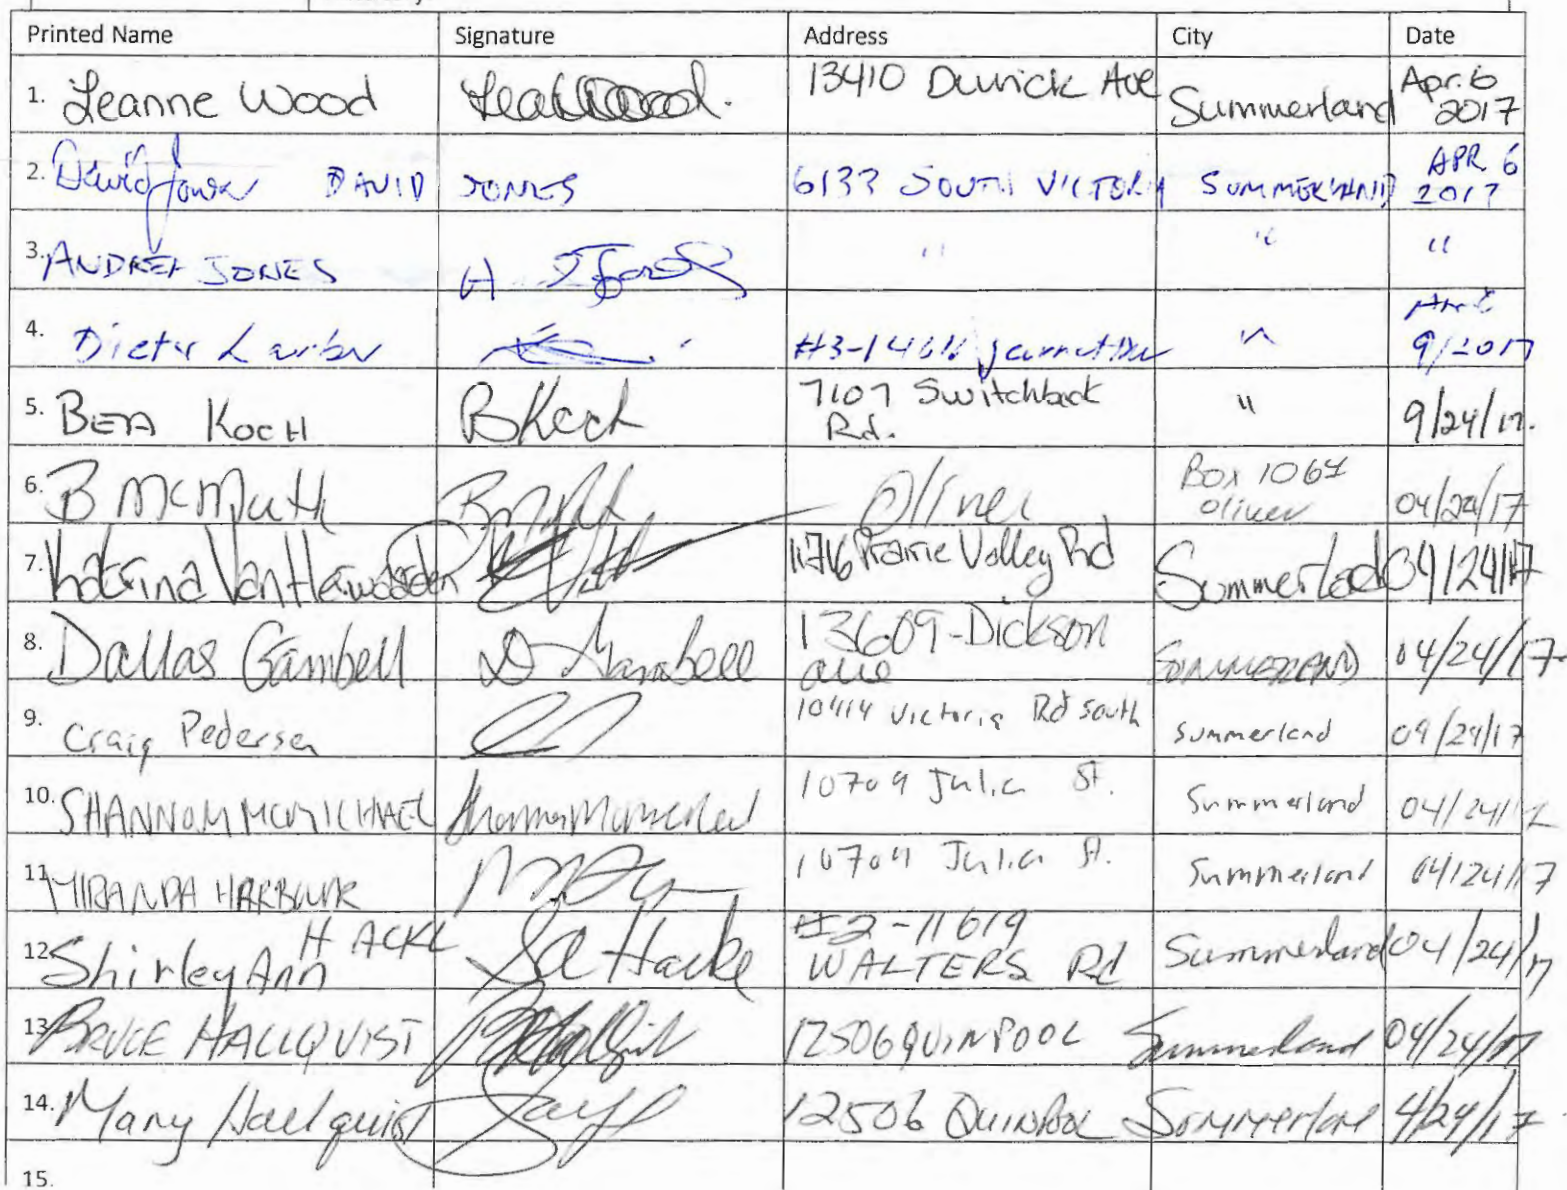 Printed Name Signature Address City Date
1. Leanne Wood 13410 Duvick Ave Summerland Apr. 6 2017
2. David Jones DAVID JONES 6133 SOUTH VICTORIA SUMMERLAND APR 6 2017
3. ANDREA JONES " " "
4. Dieter " 9/2017
5. BEA KOCH BKoch 7107 Switchback Rd. " 9/24/17.
6. B McMuth Oliver Box 1064 Oliver 04/24/17
7. Katrina Van Herwaarden 11716 Prairie Valley Rd Summerland 04/24/17
8. Dallas Gambell D Gambell 13609-Dickson ave SUMMERLAND 04/24/17
9. Craig Pedersen 10414 Victoria Rd south Summerland 04/24/17
10. SHANNON MCMICHAEL 10709 Julia St. Summerland 04/24/17
11. MIRANDA HARBOUR 10709 Julia St. Summerland 04/24/17
12. Shirley Ann HACKL #2-11619 WALTERS Rd Summerland 04/24/17
13. BRUCE HALLQUIST 12506 QUINPOOL Summerland 04/24/17
14. Mary Hallquist 12506 QUINPOOL Summerland 4/24/17
15.